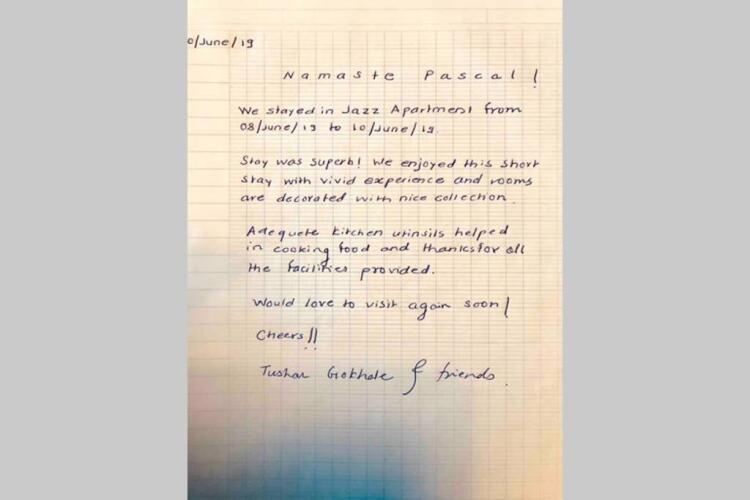 0/June/19
Namaste Pascal!
We stayed in Jazz Apartment from
08/June/19 to 10/June/19.
Stay was superb! We enjoyed this short
stay with vivid experience and rooms
are decorated with nice collection.
Adequete kitchen utinsils helped
in cooking food and thanks for all
the facilities provided.
Would love to visit again soon!
Cheers!!
Tushar Gokhale & friends.